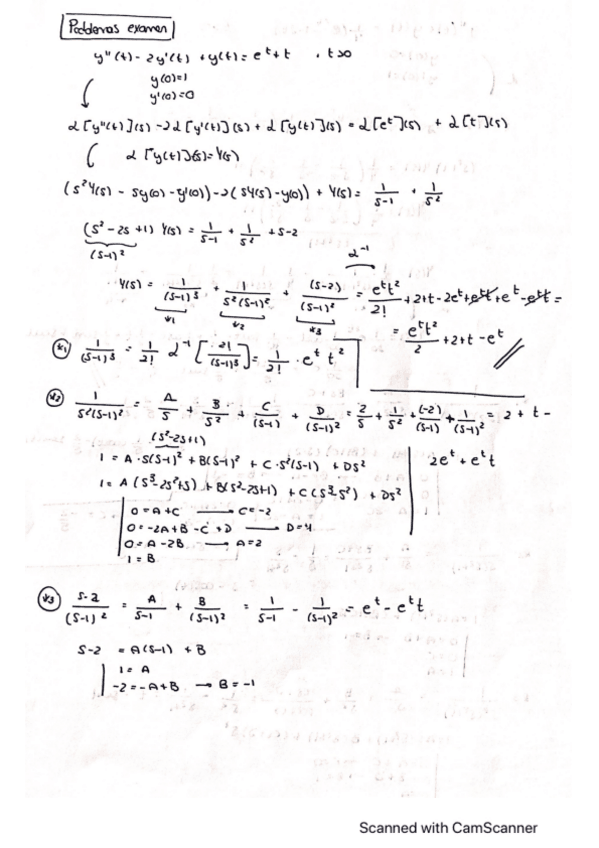 Problemas examen
y''(t) - 2y'(t) + y(t) = e^t + t , t>0
y(0)=1
y'(0)=0
ℒ[y''(t)](s) - 2ℒ[y'(t)](s) + ℒ[y(t)](s) = ℒ[e^t](s) + ℒ[t](s)
ℒ[y(t)](s) = Y(s)
(s²Y(s) - sy(0) - y'(0)) - 2(sY(s) - y(0)) + Y(s) = 1/(s-1) + 1/s²
(s² - 2s + 1) Y(s) = 1/(s-1) + 1/s² + s - 2
(s-1)²
ℒ⁻¹
Y(s) = 1/(s-1)³ + 1/(s²(s-1)²) + (s-2)/(s-1)² = e^t t²/2! + 2 + t - 2e^t + e^t t + e^t - e^t t =
*1 *2 *3
= e^t t²/2 + 2 + t - e^t
*1 1/(s-1)³ = 1/2! ℒ⁻¹[2!/(s-1)³] = 1/2! · e^t t²
*2 1/(s²(s-1)²) = A/s + B/s² + C/(s-1) + D/(s-1)² = 2/s + 1/s² + (-2)/(s-1) + 1/(s-1)² = 2 + t -
2e^t + e^t t
(s²-2s+1)
1 = A·s(s-1)² + B(s-1)² + C·s²(s-1) + Ds²
1 = A(s³-2s²+s) + B(s²-2s+1) + C(s³-s²) + Ds²
0 = A + C → C = -2
0 = -2A + B - C + D → D = 4
0 = A - 2B → A = 2
1 = B
*3 s-2/(s-1)² = A/(s-1) + B/(s-1)² = 1/(s-1) - 1/(s-1)² = e^t - e^t t
s-2 = A(s-1) + B
1 = A
-2 = -A + B → B = -1
Scanned with CamScanner